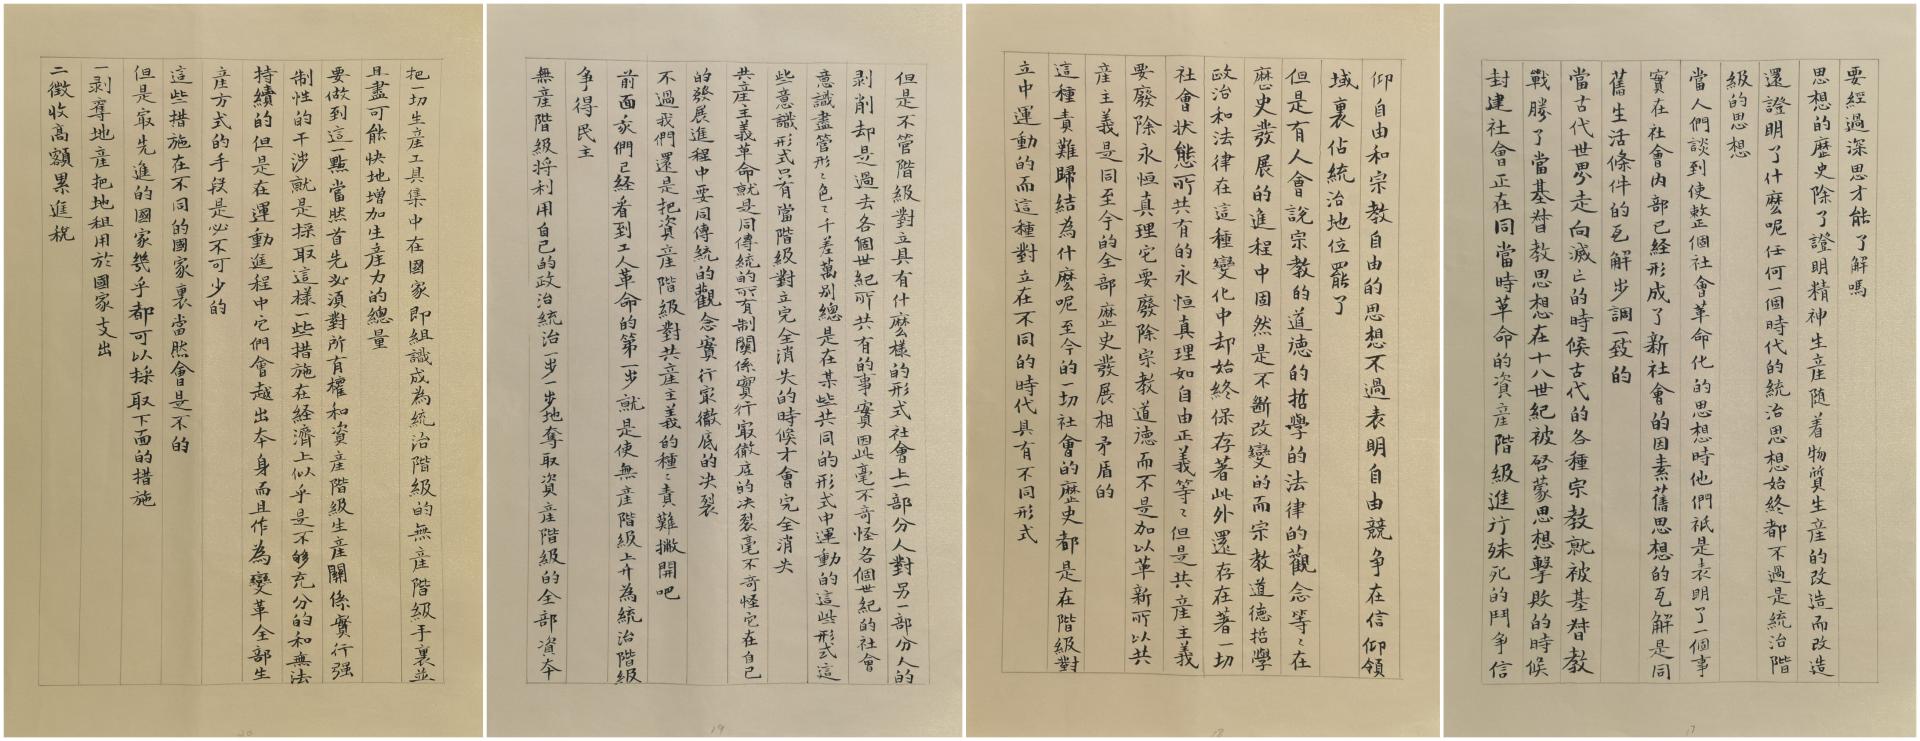 要經過深思才能了解嗎
思想的歷史除了證明精神生產随着物質生產的改造而改造
還證明了什麼呢任何一個時代的統治思想始終都不過是統治階
級的思想
當人們談到使整個社會革命化的思想時他們祇是表明了一個事
實在社會内部已經形成了新社會的因素舊思想的瓦解是同
舊生活條件的瓦解步調一致的
當古代世界走向滅亡的時候古代的各種宗教就被基督教
戰勝了當基督教思想在十八世紀被啓蒙思想擊敗的時候
封建社會正在同當時革命的資產階級進行殊死的鬥争信
17
仰自由和宗教自由的思想不過表明自由競争在信仰領
域裏佔統治地位罷了
但是有人會說宗教的道德的哲學的法律的觀念等〻在
歷史發展的進程中固然是不斷改變的而宗教道德哲學
政治和法律在這種變化中却始終保存著此外還存在著一切
社會状態所共有的永恒真理如自由正義等〻但是共產主義
要廢除永恒真理它要廢除宗教道德而不是加以革新所以共
產主義是同至今的全部歷史發展相矛盾的
這種責難歸結為什麼呢至今的一切社會的歷史都是在階級對
立中運動的而這種對立在不同的時代具有不同形式
18
但是不管階級對立具有什麼樣的形式社會上一部分人對另一部分人的
剥削却是過去各個世紀所共有的事實因此毫不奇怪各個世紀的社會
意識盡管形〻色〻千差萬别總是在某些共同的形式中運動的這些形式這
些意識形式只有當階級對立完全消失的時候才會完全消失
共產主義革命就是同傳統的所有制關係實行最徹底的决裂毫不奇怪它在自己
的發展進程中要同傳統的觀念實行最徹底的决裂
不過我們還是把資產階級對共產主義的種〻責難撇開吧
前面我們已經看到工人革命的第一步就是使無產階級上升為統治階級
争得民主
無產階級將利用自己的政治統治一步一步地奪取資產階級的全部資本
19
把一切生產工具集中在國家即組識成為統治階級的無產階級手裏並
且盡可能快地增加生產力的總量
要做到這一點當然首先必須對所有權和資產階級生產關係實行强
制性的干涉就是採取這樣一些措施在經濟上似乎是不够充分的和無法
持續的但是在運動進程中它們會越出本身而且作為變革全部生
產方式的手段是必不可少的
這些措施在不同的國家裏當然會是不的
但是最先進的國家幾乎都可以採取下面的措施
一剥奪地產把地租用於國家支出
二徵收高額累進税
20